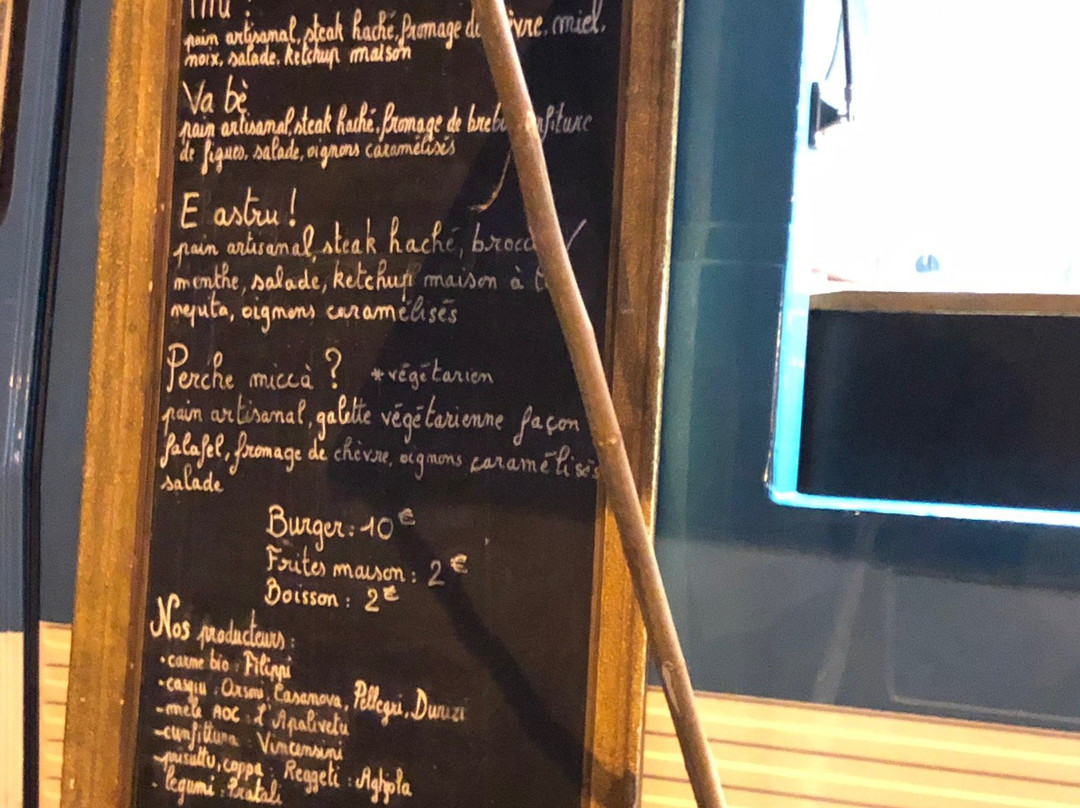 pain artisanal, steak haché, fromage de chèvre, miel,
noix, salade, ketchup maison
Va bè
pain artisanal, steak haché, fromage de brebis, confiture
de figues, salade, oignons caramélisés
E astru !
pain artisanal, steak haché,
menthe, salade, ketchup maison à
nepita, oignons caramélisés
Perche miccà ? *végétarien
pain artisanal, galette végétarienne façon
falafel, fromage de chèvre, oignons caramélisés
salade
Burger : 10€
Frites maison : 2€
Boisson : 2€
Nos producteurs :
• carne bio : Filippi
• casgiu : Orsoni, Casanova, Pellegri, Durizi
- mele AOC : L'Apalivetu
- cunfittura : Vincensini
- prisuttu, coppa : Reggeti : Aghjola
• legumi : Pratali